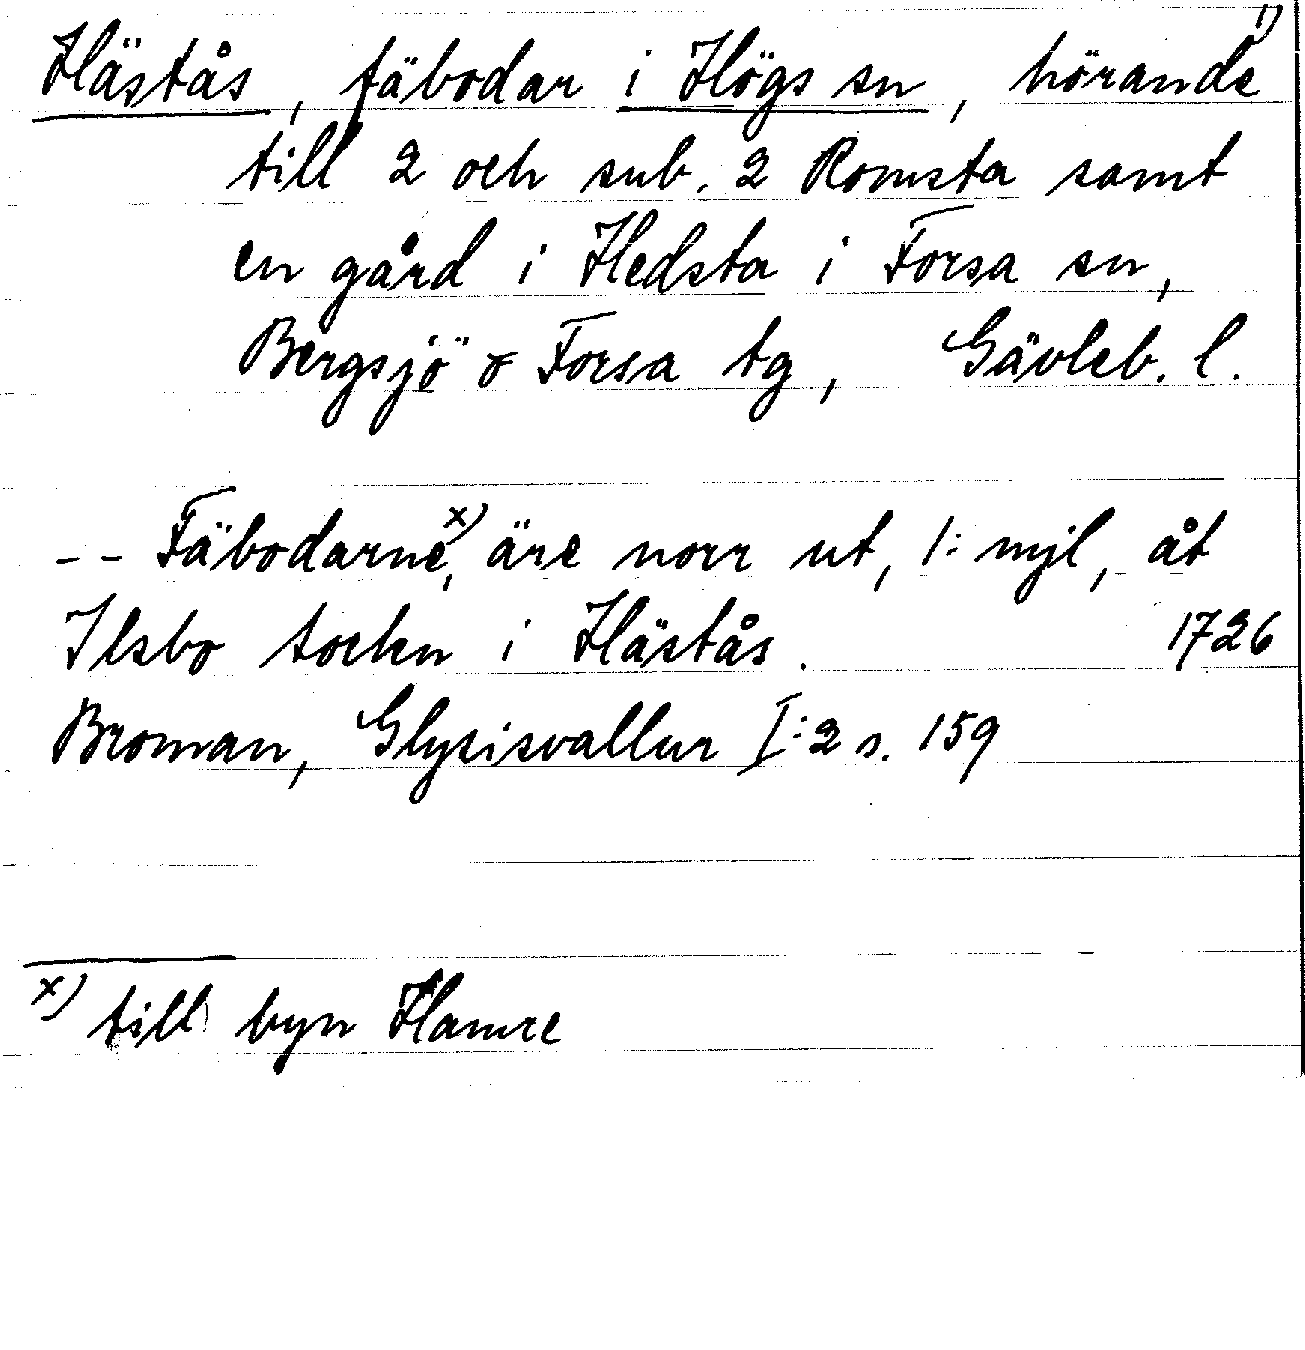 Hästås, fäbodar i Högs sn, hörande 1)
till 2 och sub. 2 Romsta samt
en gård i Hedsta i Forsa sn,
Bergsjö o Forsa tg, Gävleb. l.
-- Fäbodarne x), äre norr ut, 1: mjl, åt
Ilsbo sockn i Hästås. 1726
Broman, Glysisvallur I:2 s. 159
x) till byn Hamre